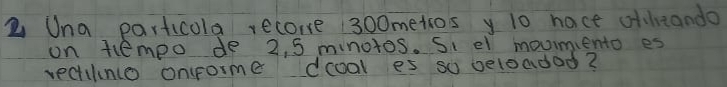 2 Una particola recorre 300metros y lo hace utilizando
un tiempo de 2,5 minotos. Si el movimiento es
rectilinio oniforme dcoal es su belocidad?